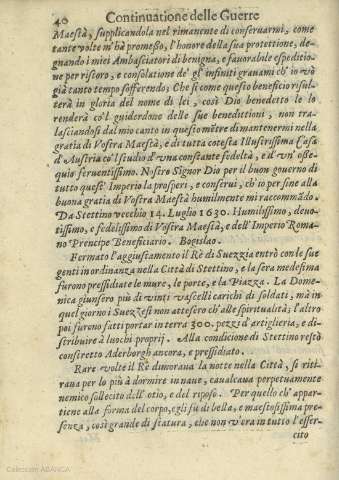 40 Continuatione delle Guerre
Maestà, supplicandola nel rimanente di conseruarmi, come
tante volte m'hà promesso, l'honore della sua protettione, de-
gnando i miei Ambasciatori di benigna, e fauorabile espeditio-
ne per ristoro, e consolatione de gl'infiniti grauami ch'io vò
già tanto tempo sofferendo; Che sì come questo beneficio risul-
terà in gloria del nome di lei, così Dio benedetto le lo
renderà co'l guiderdone delle sue benedittioni, non tra-
lasciandosi dal mio canto in questo mẽtre di mantenermi nella
gratia di Vostra Maestà, e di tutta cotesta Illustrissima Casa
d'Austria co'l studio d'vna constante fedeltà, e d'vn'osse-
quio feruentissimo. Nostro Signor Dio per il buon gouerno di
tutto quest'Imperio la prosperi, e conserui, ch'io per fine alla
buona gratia di Vostra Maestà humilmente mi raccommãdo.
Da Stettino vecchio 14. Luglio 1630. Humilissimo, deuo-
tissimo, e fedelissimo di Vostra Maestà, e dell'Imperio Roma-
no Prencipe Beneficiario. Bogislao.
Fermato l'aggiustamento il Rè di Suezzia entrò con le sue
genti in ordinanza nella Città di Stettino, e la sera medesima
furono pressidiate le mure, le porte, e la Piazza. La Dome-
nica giunsero più di vinti vascelli carichi di soldati, mà in
quel giorno i Suezzesi non attesero ch'alle spiritualità; l'altro
poi furono fatti portar in terra 300. pezzi d'artiglieria, e di-
stribuire à luochi proprij. Alla conditione di Stettino restò
constretto Aderborgh ancora, e pressidiato.
Rare volte il Rè dimoraua la notte nella Città, si riti-
raua per lo più à dormire in naue, caualcaua perpetuamente
nemico sollecito dell'otio, e del riposo. Per quello ch'appar-
tiene alla forma del corpo, egli fù di bella, e maestosissima pre-
senza, così grande di statura, che non v'era in tutto l'esser-
cito
Colección ABANCA